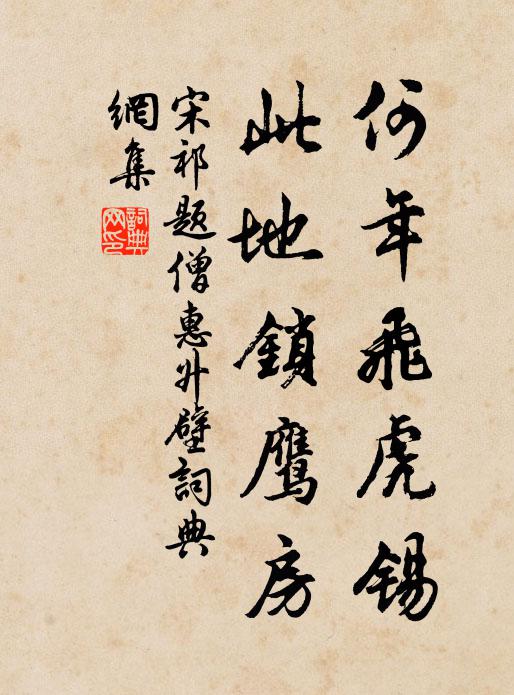 何年飛虎锡
此地鎖鷹房
宋祁題僧惠外壁詞典
網集
詞典
网印